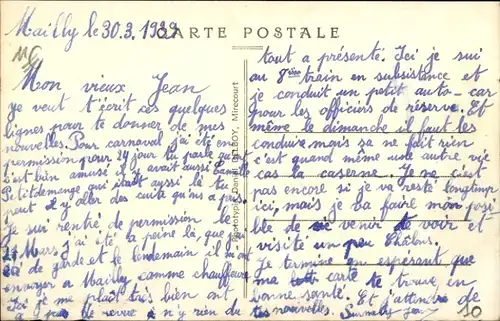 Mailly le 30.3.1939
CARTE POSTALE
Mon vieux Jean
je veut t'écrit ces quelques
lignes pour te donner de mes
nouvelles. Pour carnaval j'ai été en
permission pour 24 jour tu parle qu'on
c'est bien amusé il y avait aussi
Petitdemange qui était aussi là tu
peut il y'aller des cuite qu'ons a pris.
Je suis rentré de permission le
21 Mars j'ai été a peine là, que j'ai
de garde et le lendemain il m'ont
envoyer a Mailly comme chauffeur
Ici je me plait très bien ont
a pas de revue a n'y rien du
Phototypie Daniel DELBOY, Mirecourt
tout a présenté. Ici je sui
au 8ème train en subsistance et
je conduit un petit auto-car
pour les officiers de réserve. Et
même le dimanche il faut les
conduire mais sa ne fait rien
c'est quand même une autre vie
cas la caserne. Je ne c'est
pas encore si je va resté longtemp
ici, mais je va faire mon posi
ble de venir te voir et
visité un peu Châlons.
Je termine en espérant que
ma carte te trouve en
bonne santé. Et j'attendre de
tes nouvelles.
10